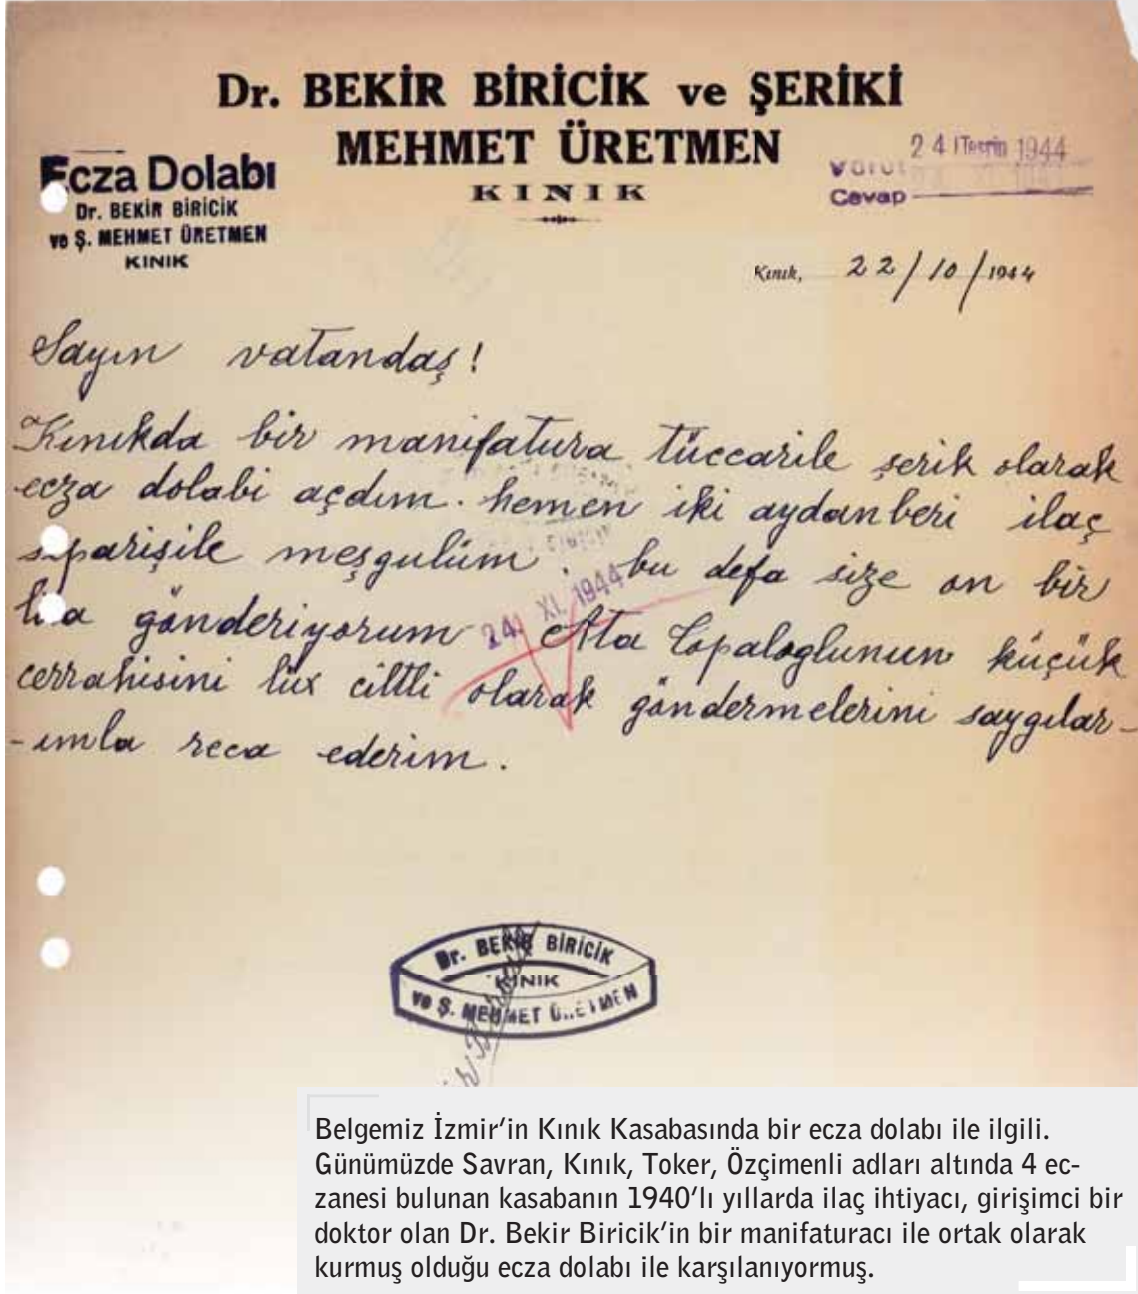 Dr. BEKİR BİRİCİK ve ŞERİKİ
MEHMET ÜRETMEN
KINIK
Ecza Dolabı
Dr. BEKİR BİRİCİK
ve Ş. MEHMET ÜRETMEN
KINIK
24 İTeşrin 1944
Cevap
Kınık, 22/10/1944
Sayın vatandaş!
Kınıkda bir manifatura tüccarile şerik olarak
ecza dolabi açdım. hemen iki aydanberi ilaç
siparişile meşgulüm. bu defa size on bir
lira gönderiyorum Ata Topaloglunun küçük
cerrahisini lüx ciltli olarak göndermelerini saygılar-
-ımla reca ederim.
24 XI. 1944
Dr. BEKİR BİRİCİK
KINIK
ve Ş. MEHMET ÜRETMEN
Belgemiz İzmir'in Kınık Kasabasında bir ecza dolabı ile ilgili.
Günümüzde Savran, Kınık, Toker, Özçimenli adları altında 4 ec-
zanesi bulunan kasabanın 1940'lı yıllarda ilaç ihtiyacı, girişimci bir
doktor olan Dr. Bekir Biricik'in bir manifaturacı ile ortak olarak
kurmuş olduğu ecza dolabı ile karşılanıyormuş.